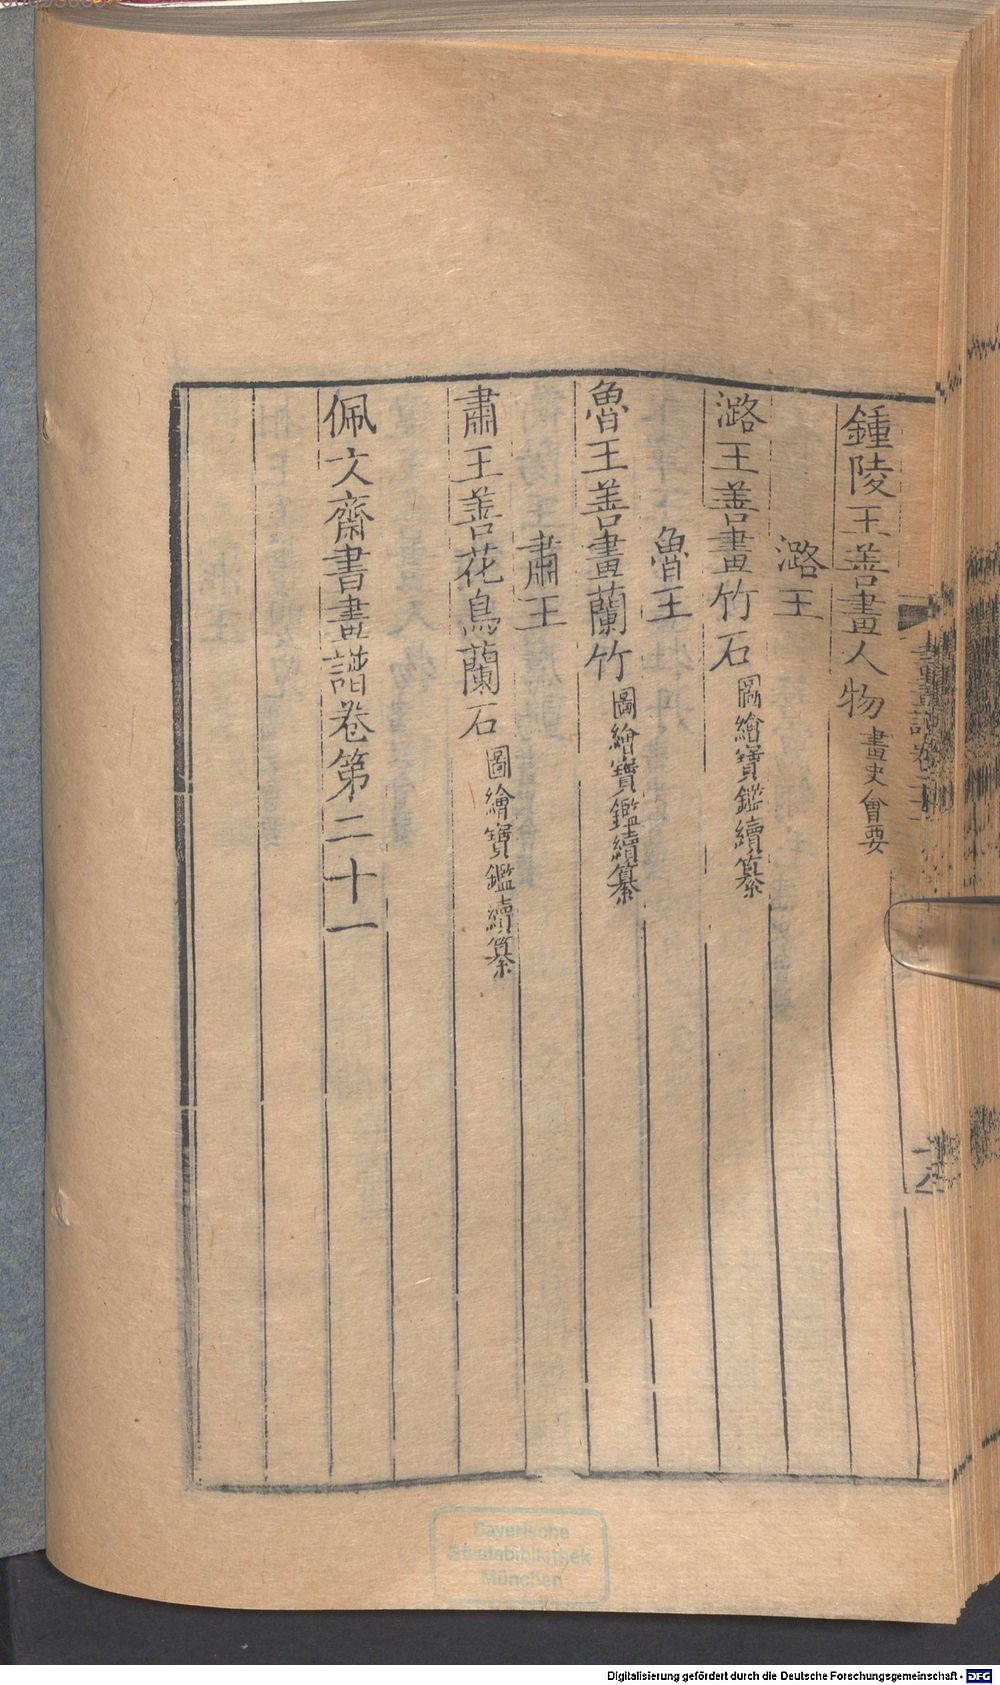 鍾陵王善畫人物畫史會要
潞王
潞王善畫竹石圖繪寶鑑續纂
魯王
魯王善畫蘭竹圖繪寶鑑續纂
肅王
肅王善花鳥蘭石圖繪寶鑑續纂
佩文齋書畫譜卷第二十一
Bayerische
Staatsbibliothek
München
Digitalisierung gefördert durch die Deutsche Forschungsgemeinschaft - DFG